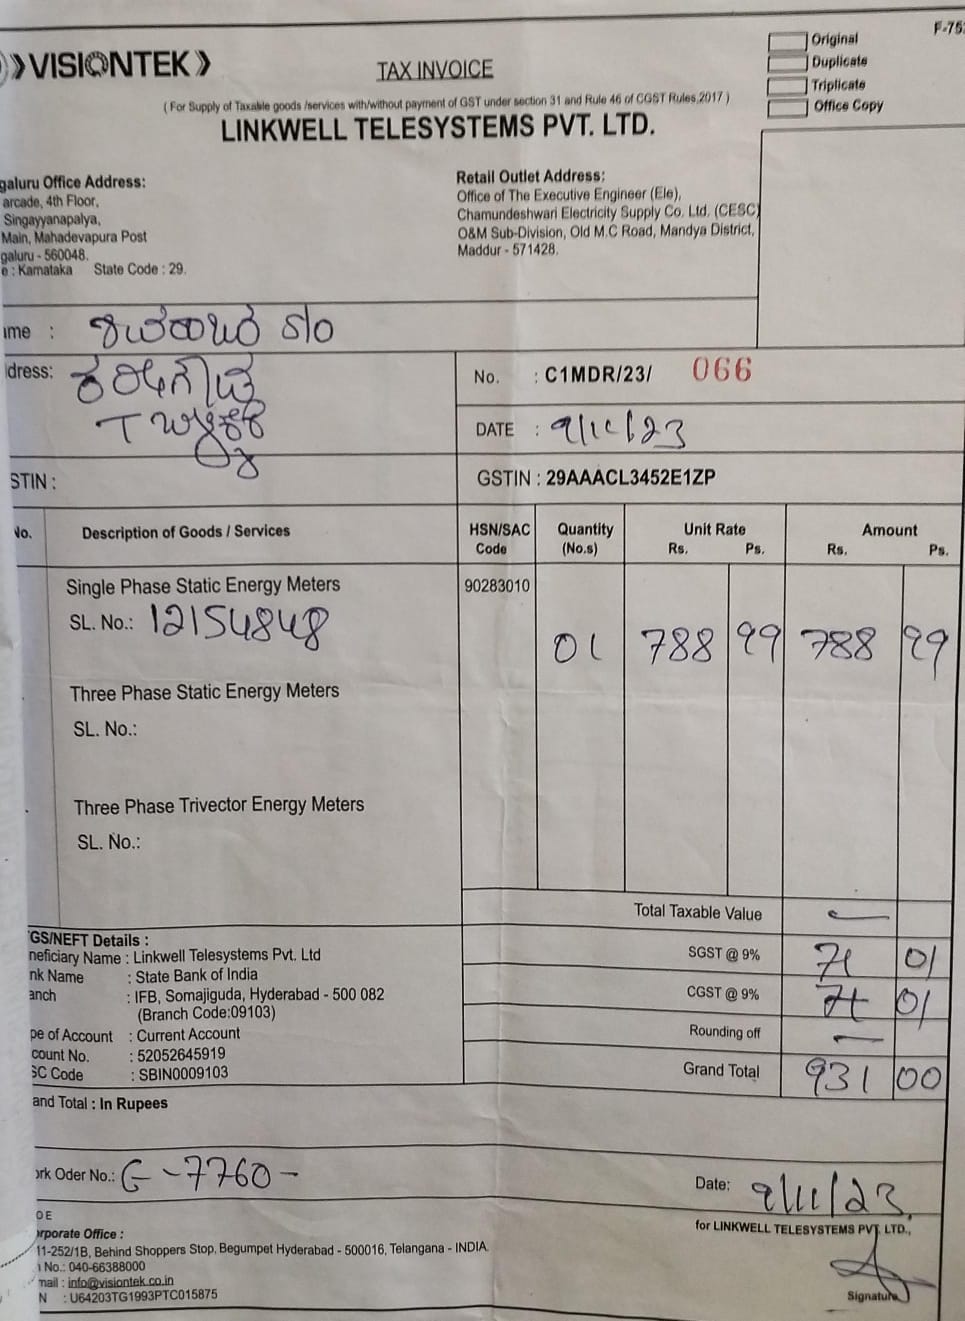 VISIONTEK
TAX INVOICE
Original
Duplicate
Triplicate
Office Copy
F-75
( For Supply of Taxable goods /services with/without payment of GST under section 31 and Rule 46 of CGST Rules,2017 )
LINKWELL TELESYSTEMS PVT. LTD.
galuru Office Address:
arcade, 4th Floor,
Singayyanapalya,
Main, Mahadevapura Post
galuru - 560048.
e : Karnataka State Code : 29.
Retail Outlet Address:
Office of The Executive Engineer (Ele),
Chamundeshwari Electricity Supply Co. Ltd. (CESC)
O&M Sub-Division, Old M.C Road, Mandya District,
Maddur - 571428.
ame : S/o
dress:
No. : C1MDR/23/ 066
DATE : 9/11/23
STIN :
GSTIN : 29AAACL3452E1ZP
No. Description of Goods / Services HSN/SAC Code Quantity (No.s) Unit Rate Rs. Ps. Amount Rs. Ps.
Single Phase Static Energy Meters 90283010
SL. No.: 12154848 01 788 99 788 99
Three Phase Static Energy Meters
SL. No.:
Three Phase Trivector Energy Meters
SL. No.:
Total Taxable Value —
SGST @ 9% 71 01
CGST @ 9% 71 01
Rounding off —
Grand Total 931 00
GS/NEFT Details :
neficiary Name : Linkwell Telesystems Pvt. Ltd
nk Name : State Bank of India
anch : IFB, Somajiguda, Hyderabad - 500 082
(Branch Code:09103)
pe of Account : Current Account
count No. : 52052645919
SC Code : SBIN0009103
and Total : In Rupees
ork Oder No.: G-7760-
Date: 9/11/23
for LINKWELL TELESYSTEMS PVT. LTD.,
OE
orporate Office :
11-252/1B, Behind Shoppers Stop, Begumpet Hyderabad - 500016, Telangana - INDIA.
No.: 040-66388000
mail : info@visiontek.co.in
N : U64203TG1993PTC015875
Signature